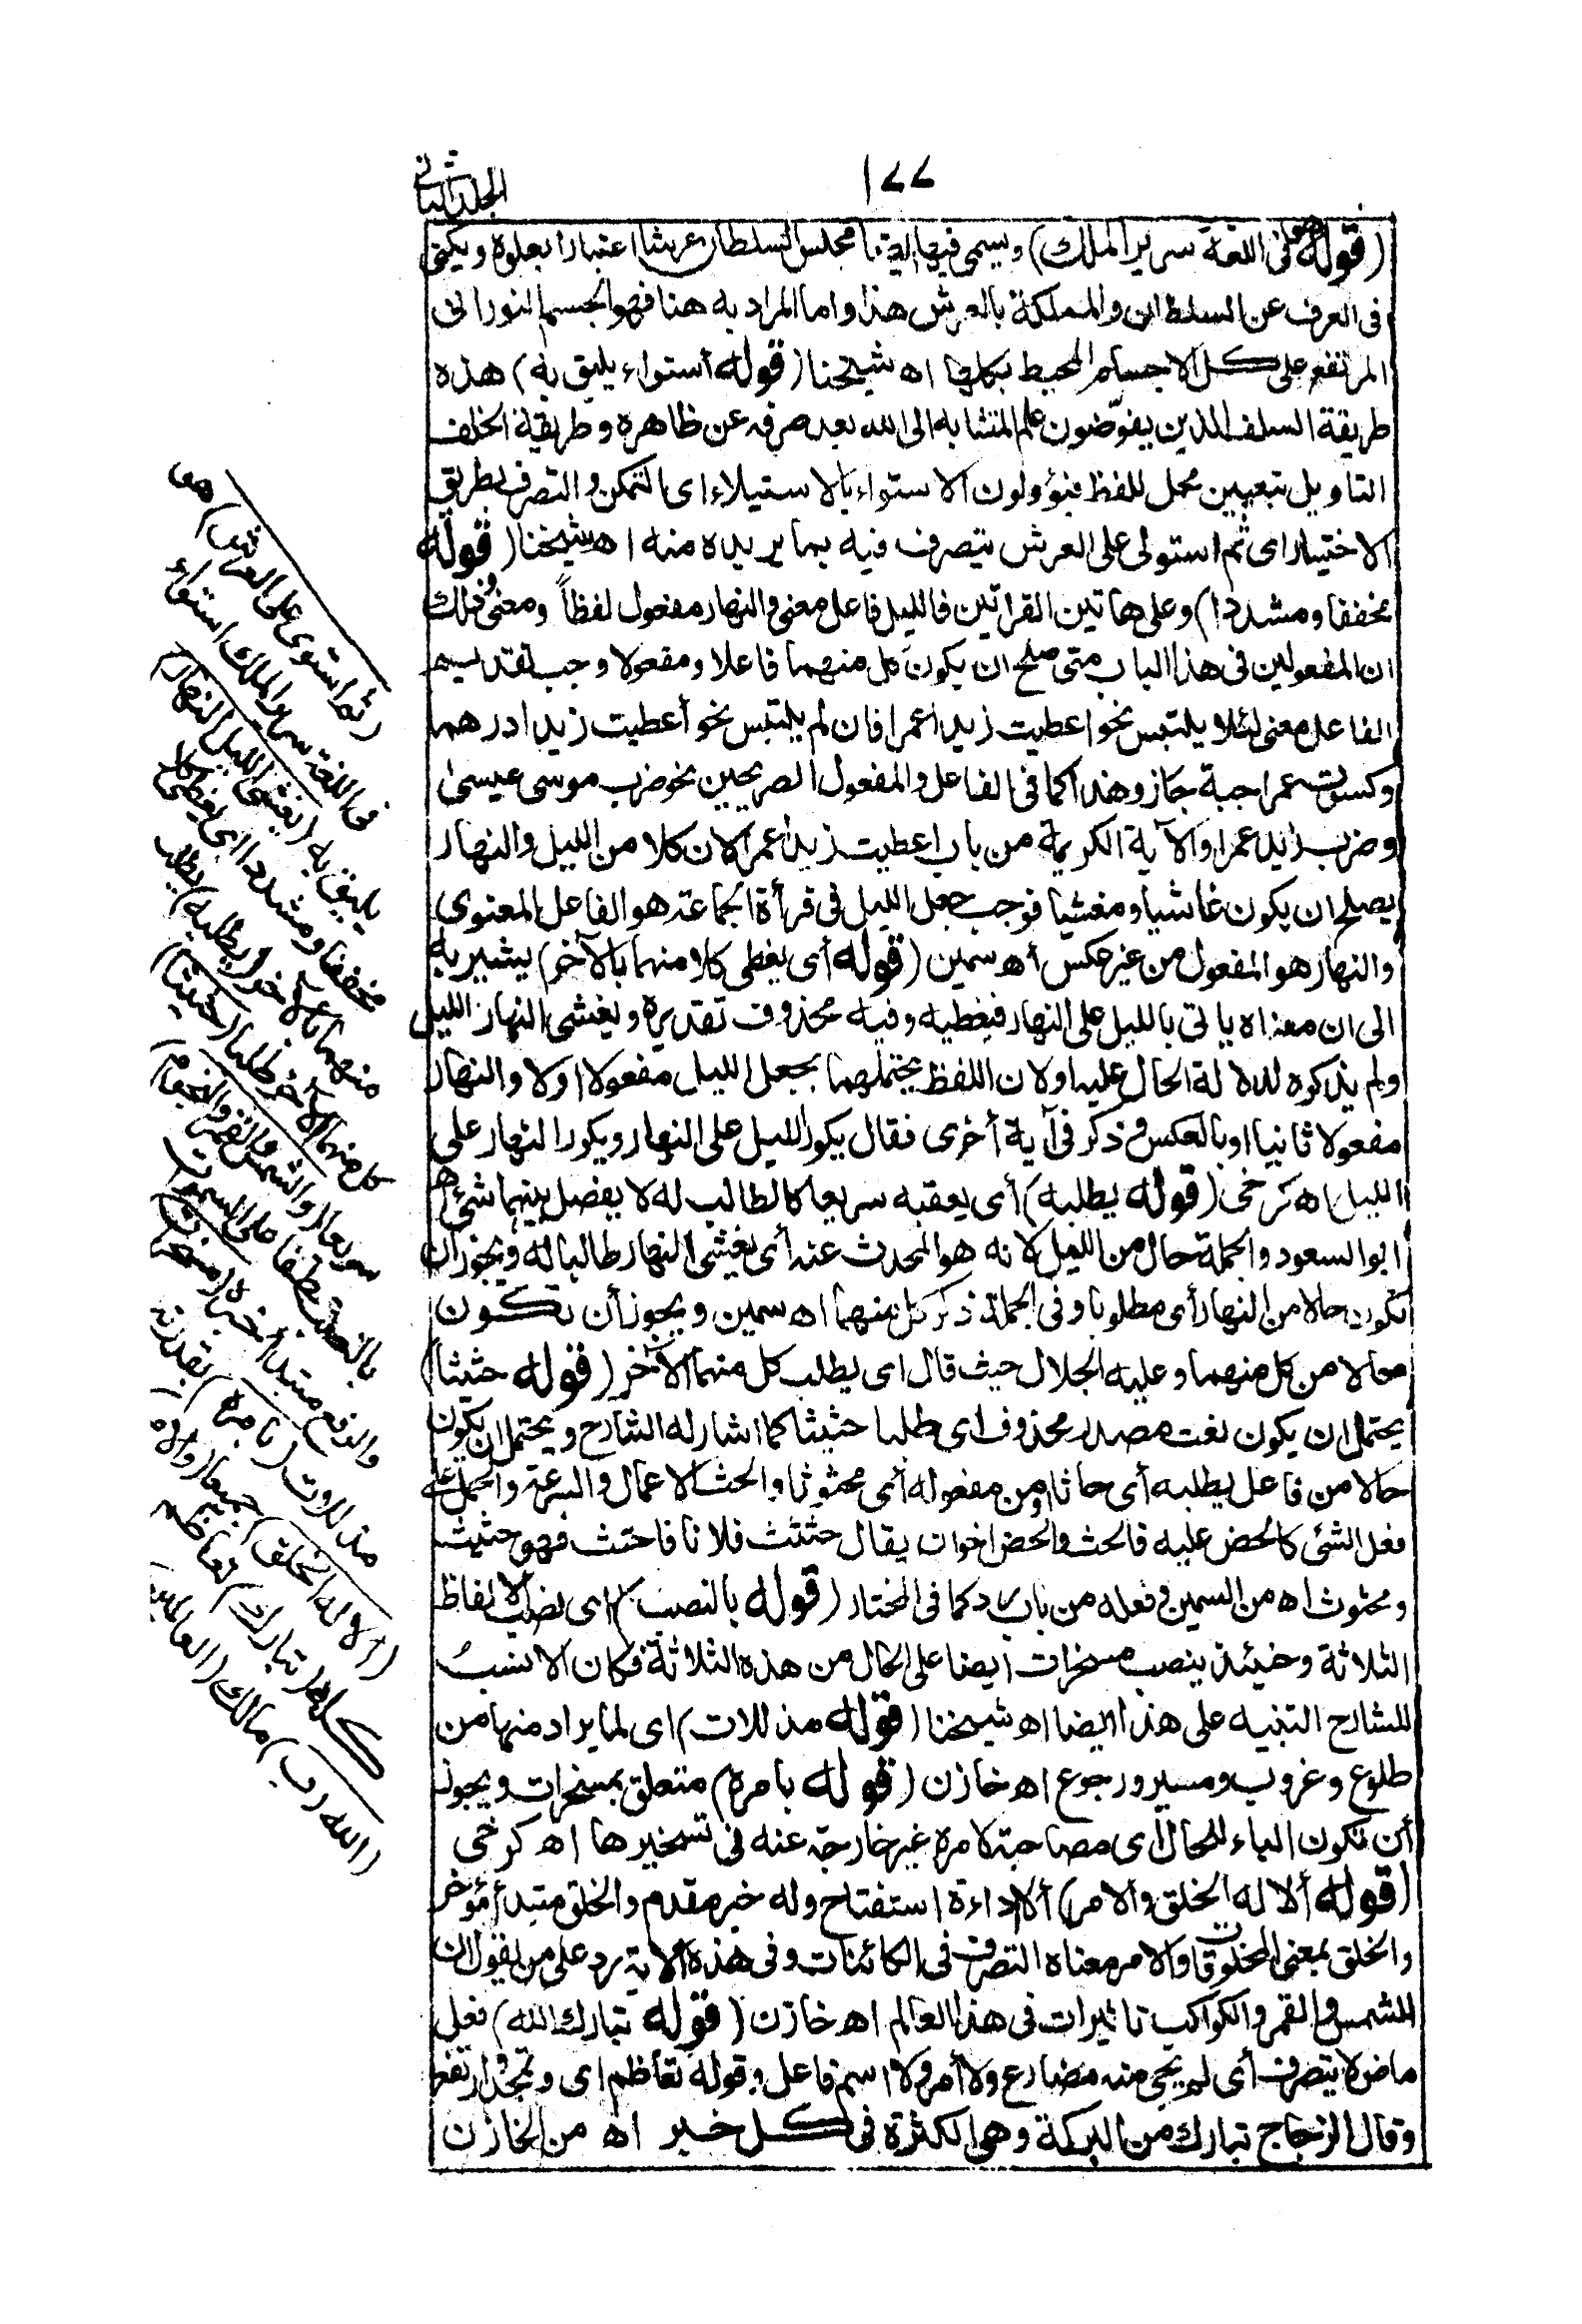 ١٧٧
الجلد الثانى
(قوله هو فى اللغة سرير الملك) ويسمى فيها ايضا مجلس السلطان عريشا اعتبارا بعلوه ويكنى
فى العرف عن السلطان والمملكة بالعرش هذا واما المراد به هنا فهو الجسم النورانى
المرتفع على كل الاجسام المحيط بكلها اه شيخنا (قوله أستواء يليق به) هذه
طريقة السلف الذين يفوّضون علم المتشابه الى الله بعد صرفه عن ظاهره وطريقة الخلف
التاويل بتعيين محمل للفظ فيؤولون الاستواء بالاستيلاء اى التمكن والتصرف بطريق
الاختيار اى ثم استولى على العرش يتصرف فيه بما يريده منه اه شيخنا (قوله
مخففا ومشددا) وعلى هاتين القراتين فالليل فاعل معنى والنهار مفعول لفظاً ومعنى وذلك
ان المفعولين فى هذا الباب متى صلح ان يكون كل منهما فاعلا ومفعولا وجب تقديم
الفاعل معنى لئلا يلتبس نحو اعطيت زيدا عمرا فان لم يلتبس نحو أعطيت زيدا درهما
وكسوت عمرا جبة جاز وهذا كما فى الفاعل والمفعول الصريحين نحو ضرب موسى عيسى
وضرب زيد عمرا والآية الكريمة من باب اعطيت زيدا عمرا لان كلا من الليل والنهار
يصلح ان يكون غاشيا ومغشيا فوجب جعل الليل فى قرأة الجماعة هو الفاعل المعنوى
والنهار هو المفعول من غير عكس أه سمين (قوله أى يغطى كلا منهما بالآخر) يشير به
الى ان معناه ياتى بالليل على النهار فيغطيه وفيه محذوف تقديره ويغشى النهار الليل
ولم يذكره لدلالة الحال عليه اولان اللفظ يحتملهما بجعل الليل مفعولا اولا والنهار
مفعولا ثانيا او بالعكس وذكر فى آية أخرى فقال يكور الليل على النهار ويكور النهار على
الليل اه كرخى (قوله يطلبه) أى يعقبه سريعا كالطالب له لا يفصل بينهما شئ اه
ابو السعود والجملة حال من الليل لانه هو المحدث عنه أى يغشى النهار طالبا له ويجوز ان
تكون حالا من النهار أى مطلوبا وفى الجملة ذكر كل منهما اه سمين ويجوز أن تكون
حالا من كل منهما وعليه الجلال حيث قال اى يطلب كل منهما الآخر (قوله حثيثا)
يحتمل ان يكون نعت مصدر محذوف اى طلبا حثيثا كما اشار له الشارح ويحتمل ان يكون
حالا من فاعل يطلبه أى حاثا او من مفعوله أى محثوثا والحث الاعمال والسرعة والحمل على
فعل الشئ كالحض عليه فالحث والحض اخوان يقال حثثت فلانا فاحتث فهو حثيث
ومحثوث اه من السمين وفعله من باب رد كما فى المختار (قوله بالنصب) اى نصب الالفاظ
الثلاثة وحينئذ ينصب مسخرات ايضا على الحال من هذه الثلاثة فكان الانسبُ
للشارح التنبيه على هذا ايضا اه شيخنا (قوله مذللات) اى لما يراد منها من
طلوع وغروب ومسير ورجوع اه خازن (قوله بامره) متعلق بمسخرات ويجوز
أن تكون الباء للحال أى مصاحبة لامره غير خارجة عنه فى تسخيرها اه كرخى
(قوله ألا له الخلق والامر) ألا اداءة استفتاح وله خبر مقدم والخلق مبتدأ مؤخر
والخلق بمعنى المخلوقات والامر معناه التصرف فى الكائنات وفى هذه الآية رد على من يقول ان
للشمس والقمر والكواكب تاثيرات فى هذا العالم اه خازن (قوله تبارك الله) فعل
ماض لا يتصرف أى لم يجئ منه مضارع ولا أمر ولا اسم فاعل وقوله تعاظم اى وتمجد وارتفع
وقال الزجاج تبارك من البركة وهى الكثرة فى كل خير اه من الخازن
(ثم استوى على العرش) هو
فى اللغة سرير الملك استواء
يليق به (يغشى الليل النهار)
مخففا ومشددا اى يغطى كلا
منهما بالآخر (يطلبه) يطلب
كل منهما الآخر طلبا (حثيثا)
سريعا (والشمس والقمر والنجوم)
بالنصب عطفا على السموت
والرفع مبتدأ خبره (مسخرات)
مذللات (بامره) بقدرته
(ألا له الخلق) جميعا (والامر)
كله (تبارك) تعاظم
(الله رب) مالك (العالمين)